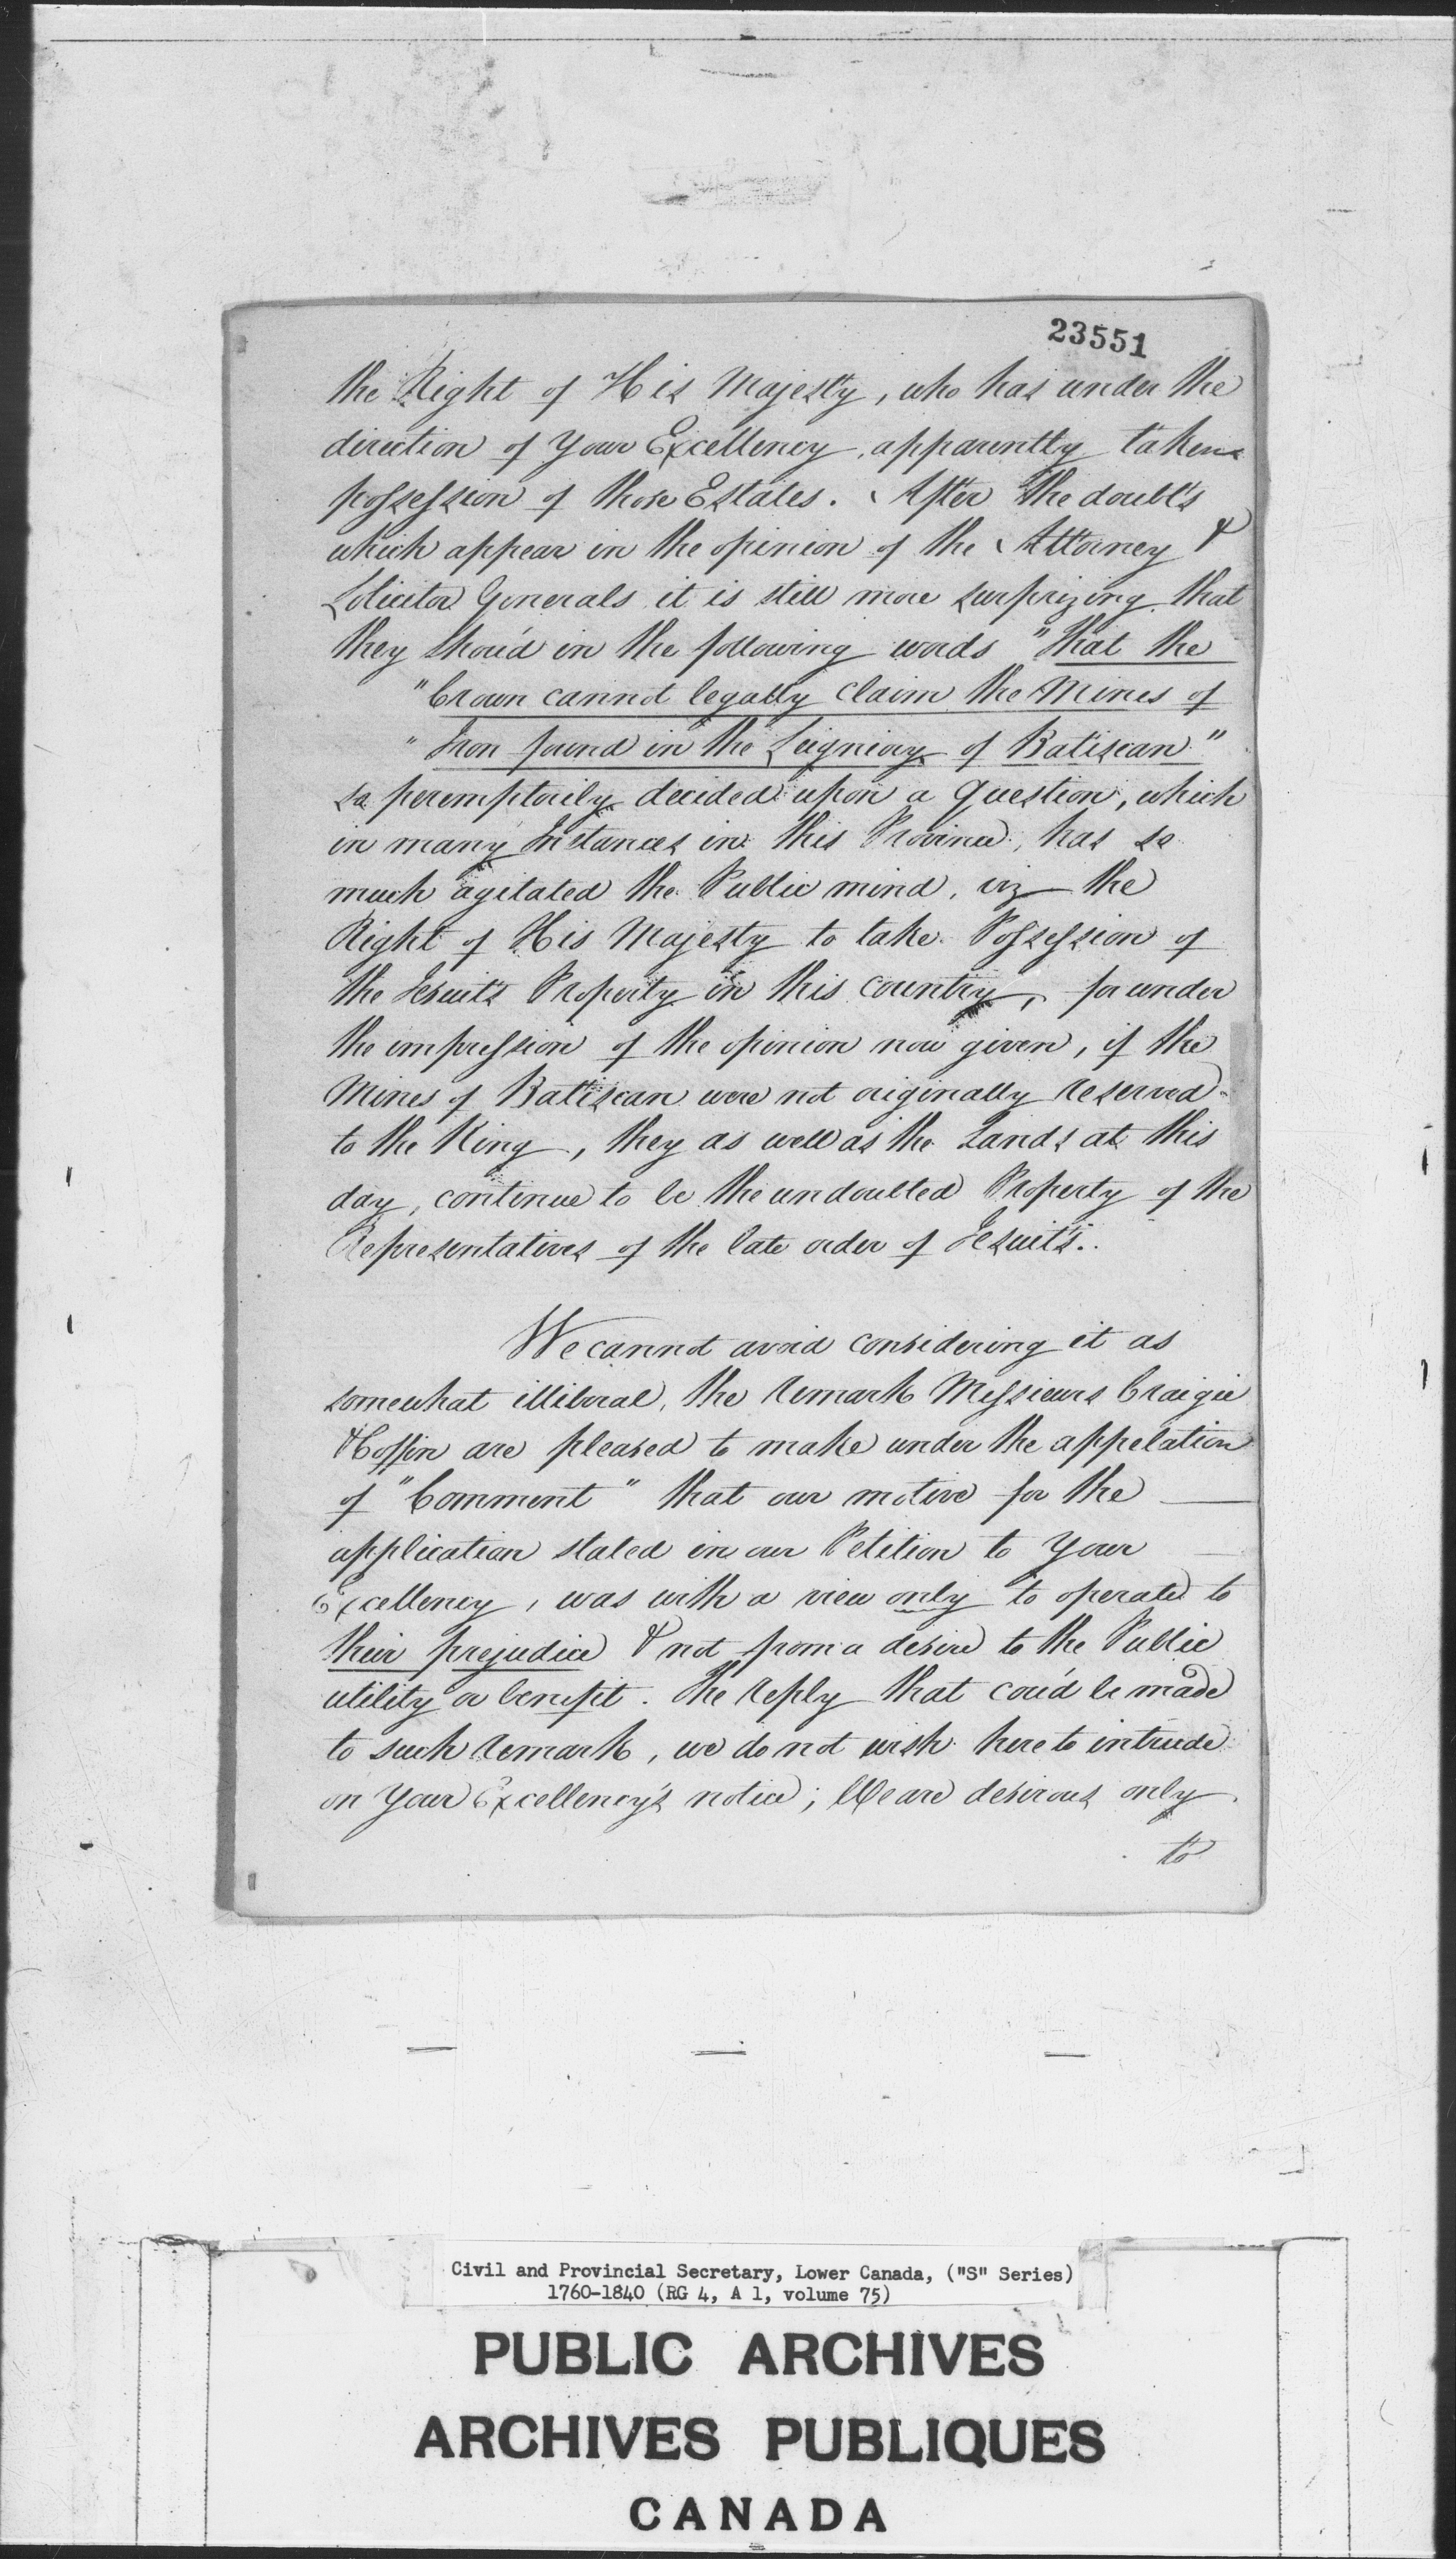 23551
the Right of His Majesty, who has under the
direction of Your Excellency, apparently taken
possession of those Estates. After the doubts
which appear in the opinion of the Attorney &
Solicitor Generals it is still more surprizing that
they shou'd in the following words "that the
"Crown cannot legally claim the Mines of
"Iron found in the Seigniory of Batiscan"
so peremptorily decided upon a Question, which
in many Instances in this Province, has so
much agitated the Public mind, viz the
Right of His Majesty to take Possession of
the Jesuits Property in this country, for under
the impression of the opinion now given, if the
Mines of Batiscan were not originally reserved
to the King, they as well as the Lands at this
day, continue to be the undoubted Property of the
Representatives of the late order of Jesuits.
We cannot avoid considering it as
somewhat illiberal, the remark Messieurs Craigie
& Coffin are pleased to make under the appelation
of "Comment" that our motive for the
application stated in our Petition to Your
Excellency, was with a view only to operate to
their prejudice & not from a desire to the Public
utility or benefit. The reply that cou'd be made
to such remark, we do not wish here to intrude
on Your Excellency's notice; We are desirous only
to
Civil and Provincial Secretary, Lower Canada, ("S" Series)
1760-1840 (RG 4, A 1, volume 75)
PUBLIC ARCHIVES
ARCHIVES PUBLIQUES
CANADA